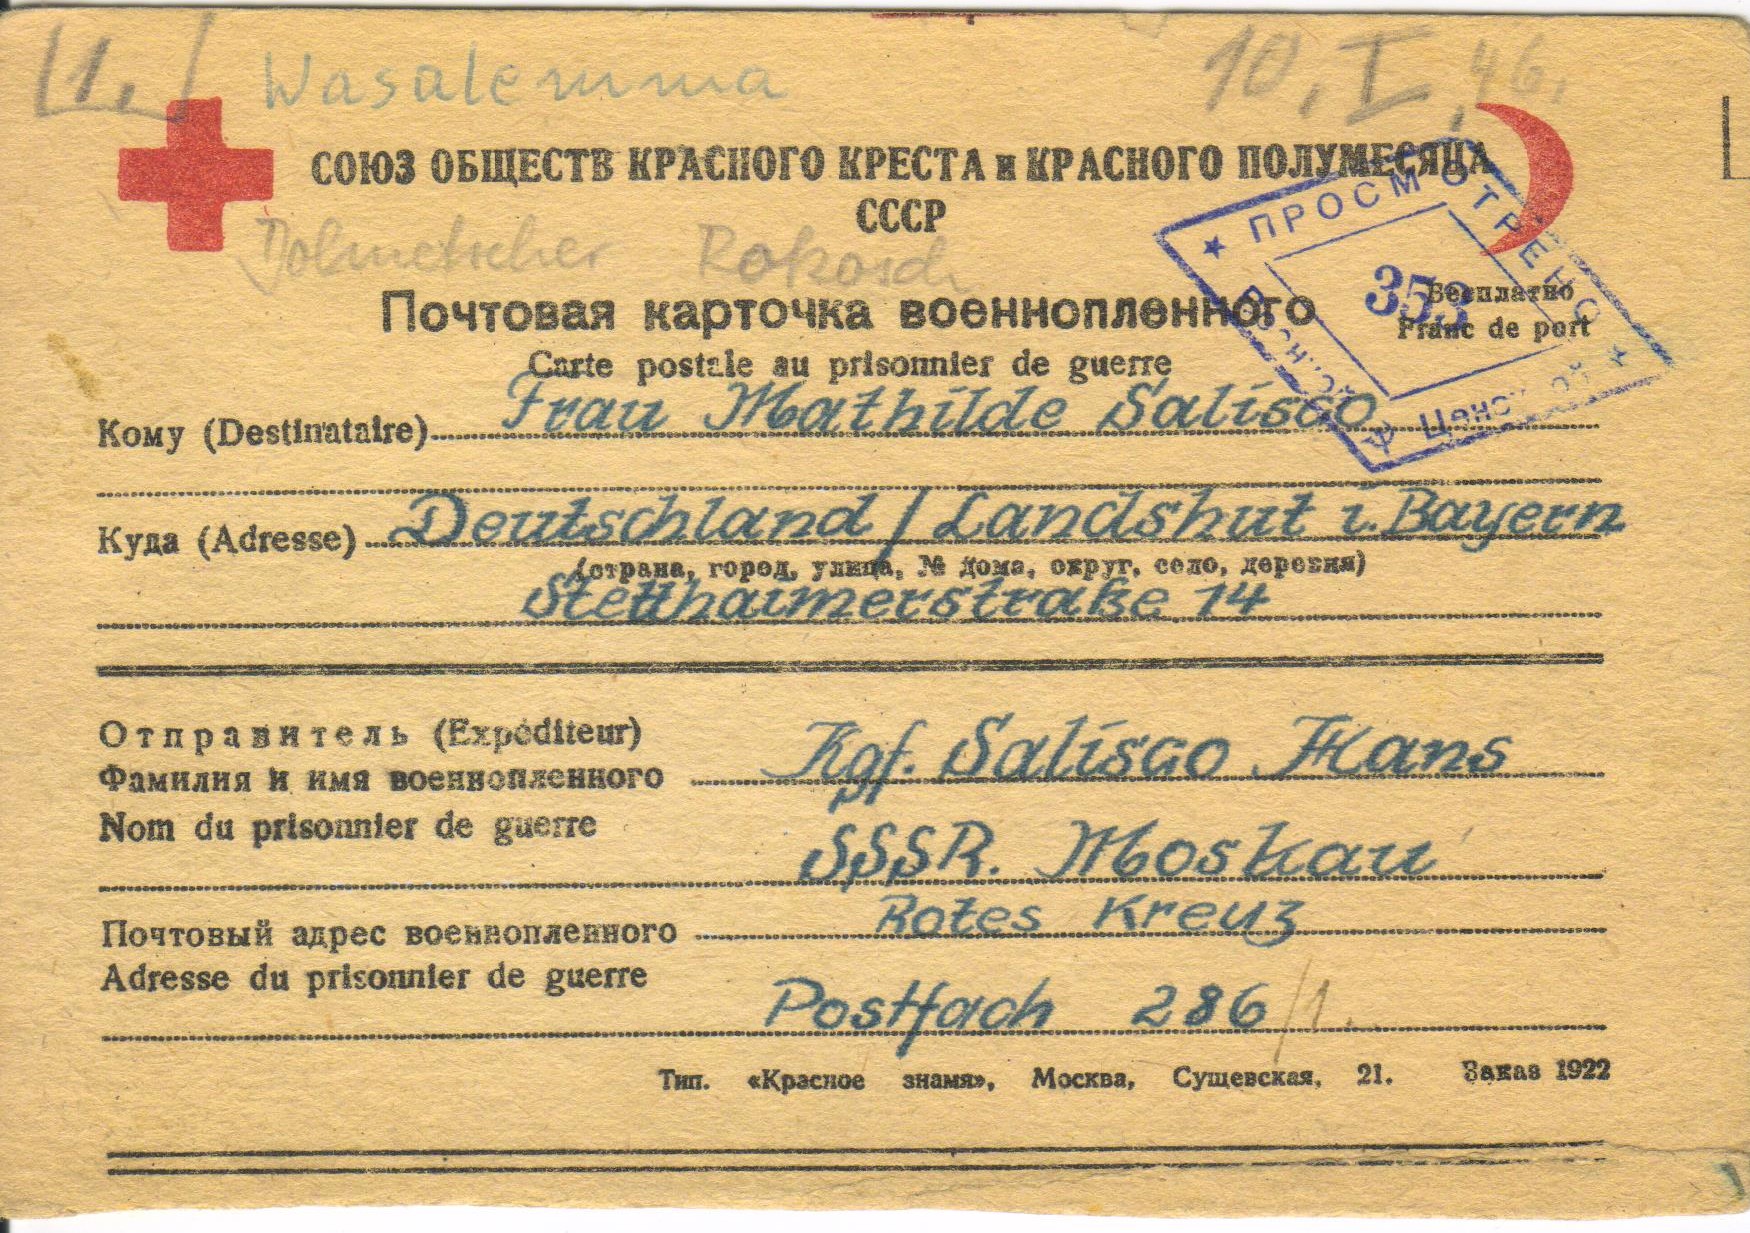 [1.] Wasalemma 10. I. 46.
СОЮЗ ОБЩЕСТВ КРАСНОГО КРЕСТА и КРАСНОГО ПОЛУМЕСЯЦА
СССР
Dolmetscher Rokosch
★ ПРОСМОТРЕНО ★
Военной Цензурой
353
Почтовая карточка военнопленного
Бесплатно
Franc de port
Carte postale au prisonnier de guerre
Кому (Destinataire) Frau Mathilde Salisco
Куда (Adresse) Deutschland / Landshut i. Bayern
(страна, город, улица, № дома, округ, село, деревня)
Stetthaimerstraße 14
Отправитель (Expéditeur)
Фамилия и имя военнопленного Kgf. Salisco Hans
Nom du prisonnier de guerre
SSSR. Moskau
Почтовый адрес военнопленного Rotes Kreuz
Adresse du prisonnier de guerre
Postfach 286/1.
Тип. «Красное знамя», Москва, Сущевская, 21. Заказ 1922